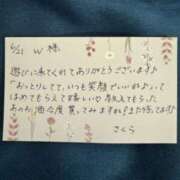 6/21 W 様
遊びに来てくれてありがとうございます♪
"おっとりしてて、いつも笑顔でいいねよって
ほめてもらえて嬉しいな 教えてもらった
あの 酒 今度 買ってみますね また待ってます
さくら